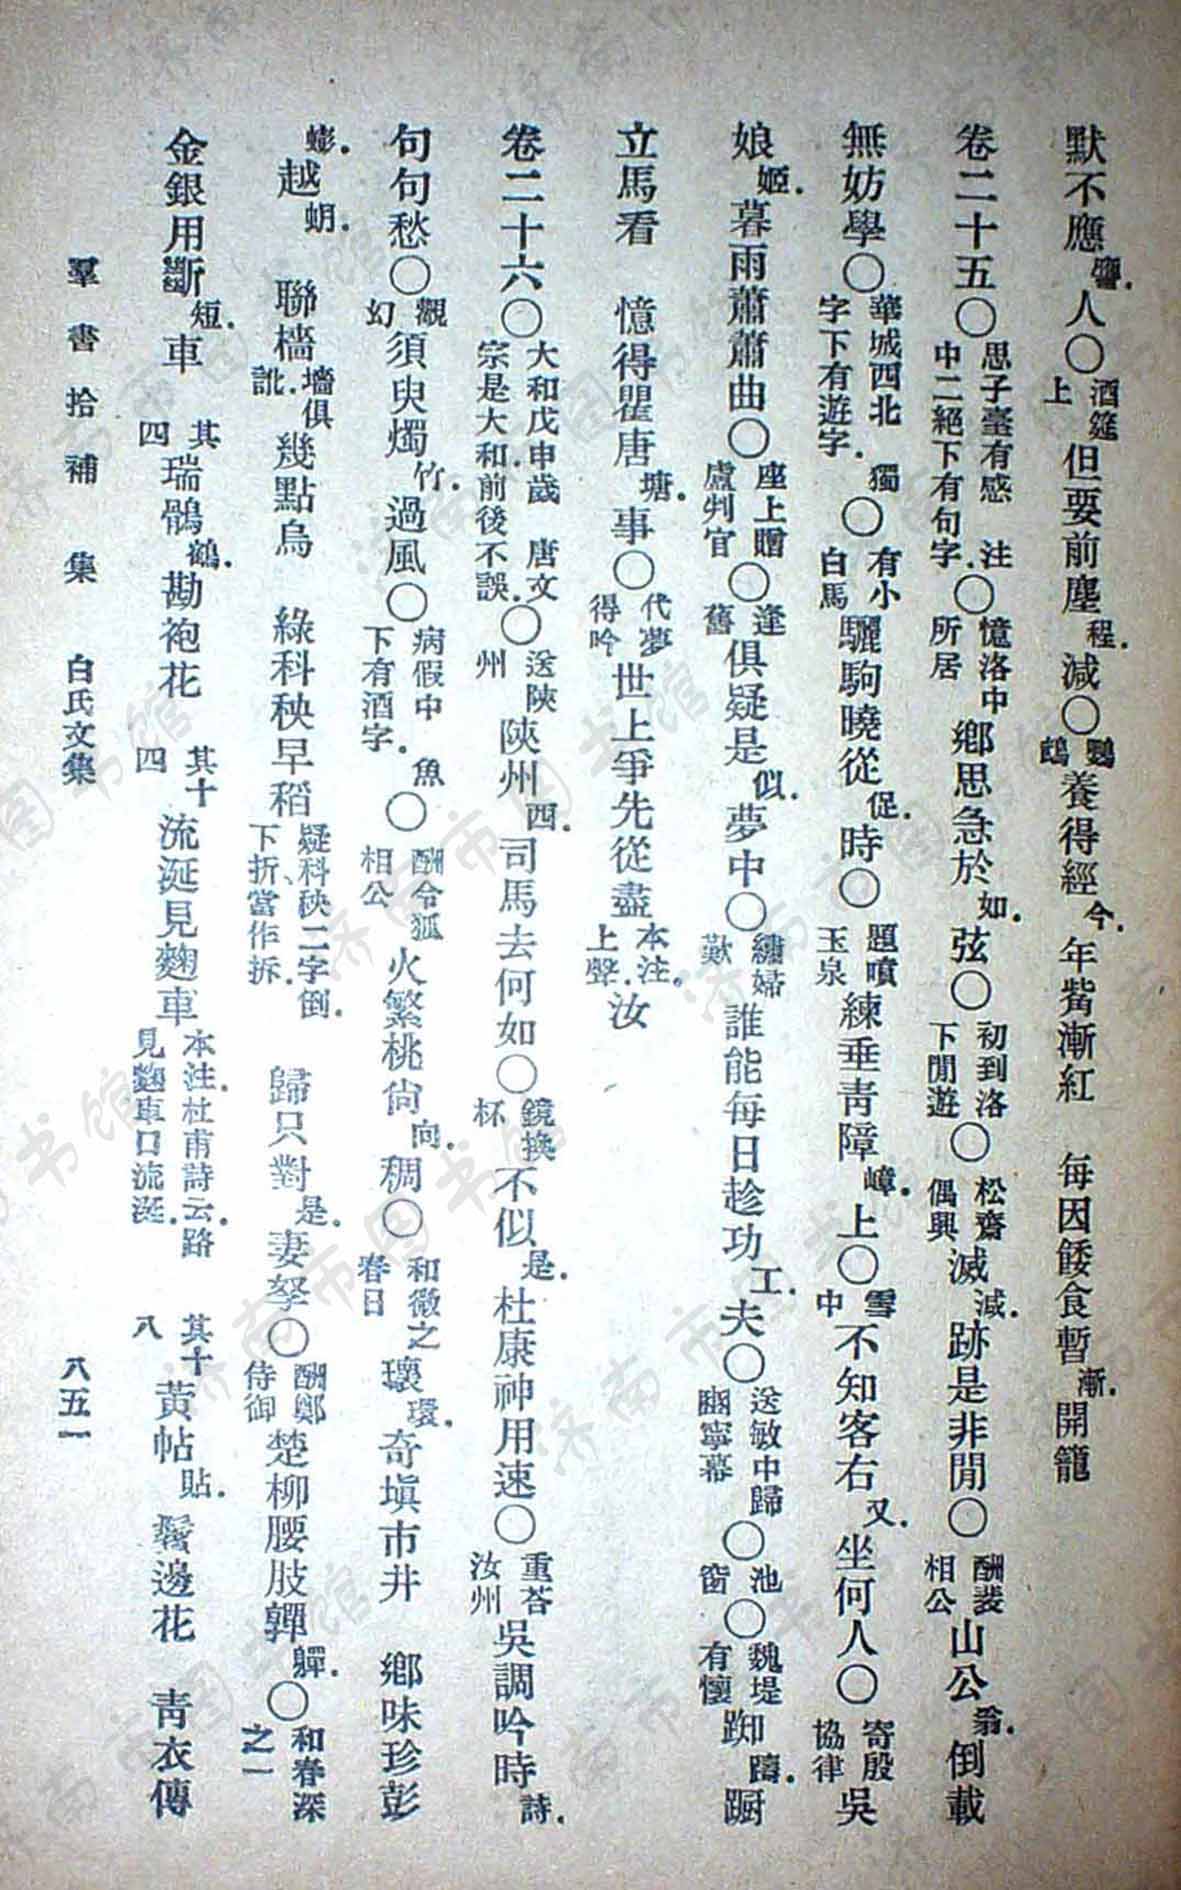 默不應譍.人〇酒筵上但要前塵程.減〇鸚鵡養得經今.年觜漸紅　每因餧食暫漸.開籠
卷二十五〇思子臺有感　注中二絕下有句字.〇憶洛中所居鄉思急於如.弦〇初到洛下閒遊〇松齋偶興滅減.跡是非閒〇酬裴相公山公翁.倒載
無妨學〇華城西北字下有遊字.獨〇有小白馬驪駒曉從促.時〇題噴玉泉練垂青障嶂.上〇雪中不知客右又.坐何人〇寄殷協律吳
娘姬.暮雨蕭蕭曲〇座上贈盧判官〇逢舊俱疑是似.夢中〇繡婦歎誰能每日趁功工.夫〇送敏中歸豳寧幕〇池窗〇魏堤有懷踟躊.蹰
立馬看　憶得瞿唐塘.事〇代夢得吟世上爭先從盡本注.上聲.汝
卷二十六〇大和戊申歲　唐文宗是大和.前後不誤.〇送陝州陝州西.司馬去何如〇鏡換杯不似是.杜康神用速〇重荅汝州吳調吟時詩.
句句愁〇觀幻須臾燭竹.過風〇病假中　魚下有酒字.〇酬令狐相公火繁桃尙向.稠〇和微之春日瓌環.奇塡市井　鄉味珍彭
蟛.越蚏.　聯檣墻俱訛.幾點烏　綠科秧早稻疑科秧二字倒.下折、當作拆.　歸只對是.妻孥〇酬鄭侍御楚柳腰肢嚲軃.〇和春深之一
金銀用斷短.車　其四瑞鶻鶴.勘袍花　其十四流涎見麴車本注.杜甫詩云.路見麴車口流涎.　其十八黃帖貼.　鬢邊花　靑衣傳
羣書拾補　集　白氏文集　八五一
济南市图书馆